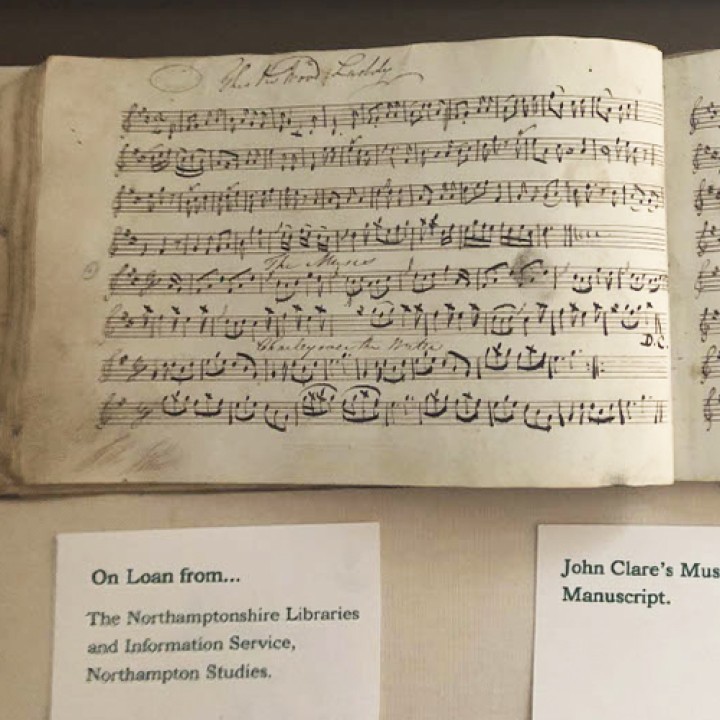 Thro the Wood Laddy
The Muses
D.C.
Charley over the Water
On Loan from...
The Northamptonshire Libraries
and Information Service,
Northampton Studies.
John Clare's Mus
Manuscript.